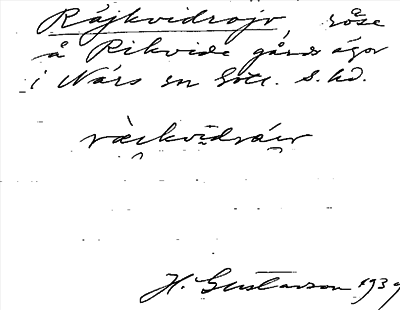 Räjkvidrojr, röse
å Rikvide gårds ägor
i När sn Gotl. s. hd.
ræi̯kvīdrɑ́i̯r
H. Gustavson 1939